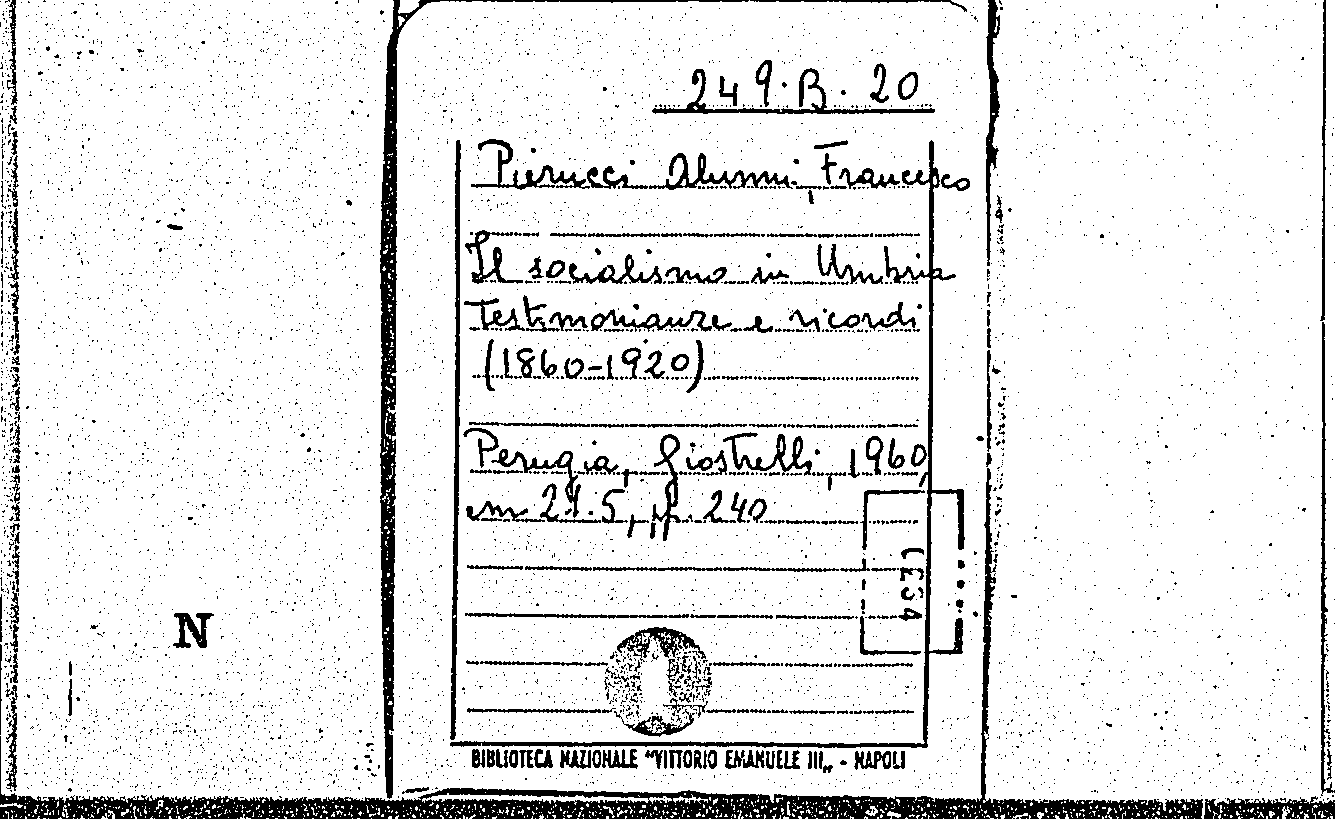 249.B.20
Pierucci Alunni, Francesco
Il socialismo in Umbria
Testimonianze e ricordi
(1860-1920)
Perugia, Giostrelli, 1960,
cm 21.5, pp. 240
N
BIBLIOTECA NAZIONALE "VITTORIO EMANUELE III„ - NAPOLI